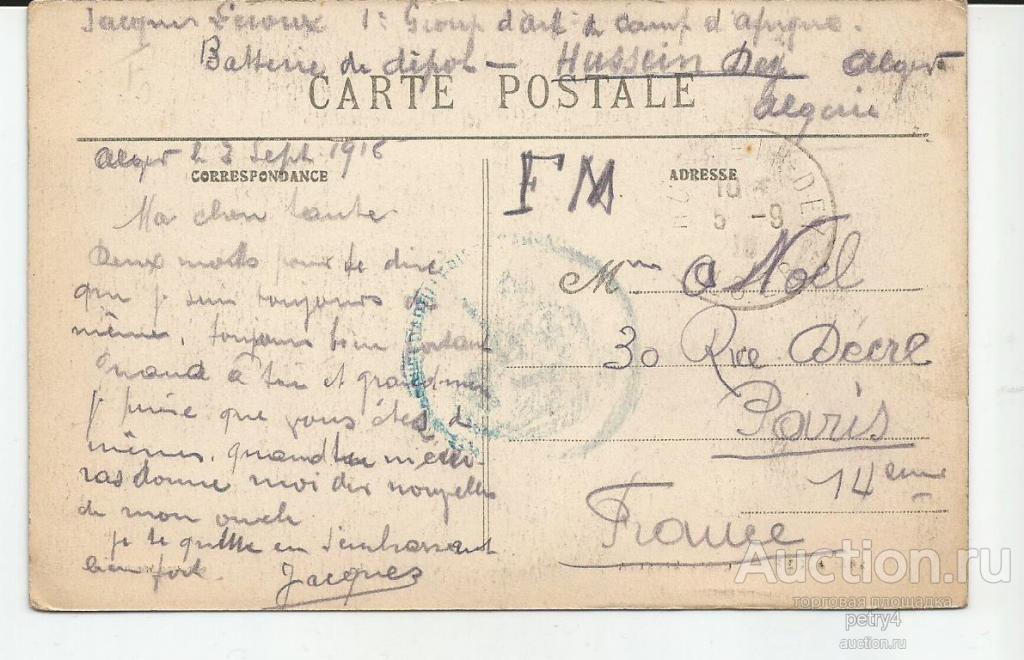 Jacques Leroux 1er Group d'art de camp d'afrique.
Batterie de dépot - Hussein Dey Alger
CARTE POSTALE
Algerie
Alger le 3 Sept 1916
CORRESPONDANCE
FM
ADRESSE
Ma chere tante
Deux mots pour te dire
que je suis toujours de
même, toujours bien portant
Quand à toi et grand-mère
je pense que vous êtes de
mêmes. quand tu m'ecri-
ras donne moi des nouvelles
de mon oncle
je te quitte en t'embrassant
bien fort.
Jacques
10
5 -9
16
Mme Noël
30 Rue Décré
Paris
14eme
France
Auction.ru
торговая площадка
petry4
auction.ru